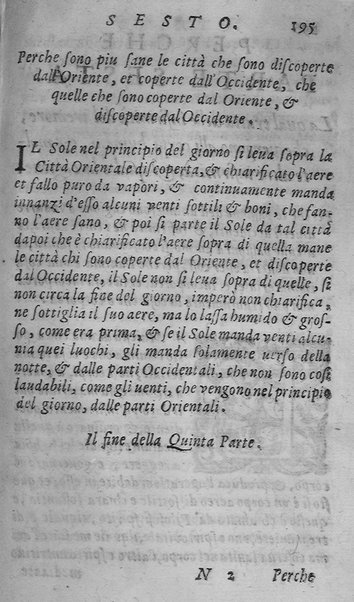 SESTO. 195
Perche sono piu sane le città che sono discoperte
dall'Oriente, et coperte dall'Occidente, che
quelle che sono coperte dal Oriente, &
discoperte dal Occidente.
IL Sole nel principio del giorno si leua sopra la
Città Orientale discoperta, & chiarificato l'aere
et fallo puro da vapori, & continuamente manda
innanzi d'esso alcuni venti sottili & boni, che fan-
no l'aere sano, & poi si parte il Sole da tal città
dapoi che è chiarificato l'aere sopra di quella mane
le città chi sono coperte dal Oriente, et discoperte
dal Occidente, il Sole non si leua sopra di quelle, si
non circa la fine del giorno, imperò non chiarifica,
ne sottiglia il suo aere, ma lo lassa humido & gros-
so, come era prima, & se il Sole manda venti alcu-
nia quei luochi, gli manda solamente uerso della
notte, & dalle parti Occidentali, che non sono cosi
laudabili, come gli uenti, che vengono nel principio
del giorno, dalle parti Orientali.
Il fine della Quinta Parte.
N 2 Perche